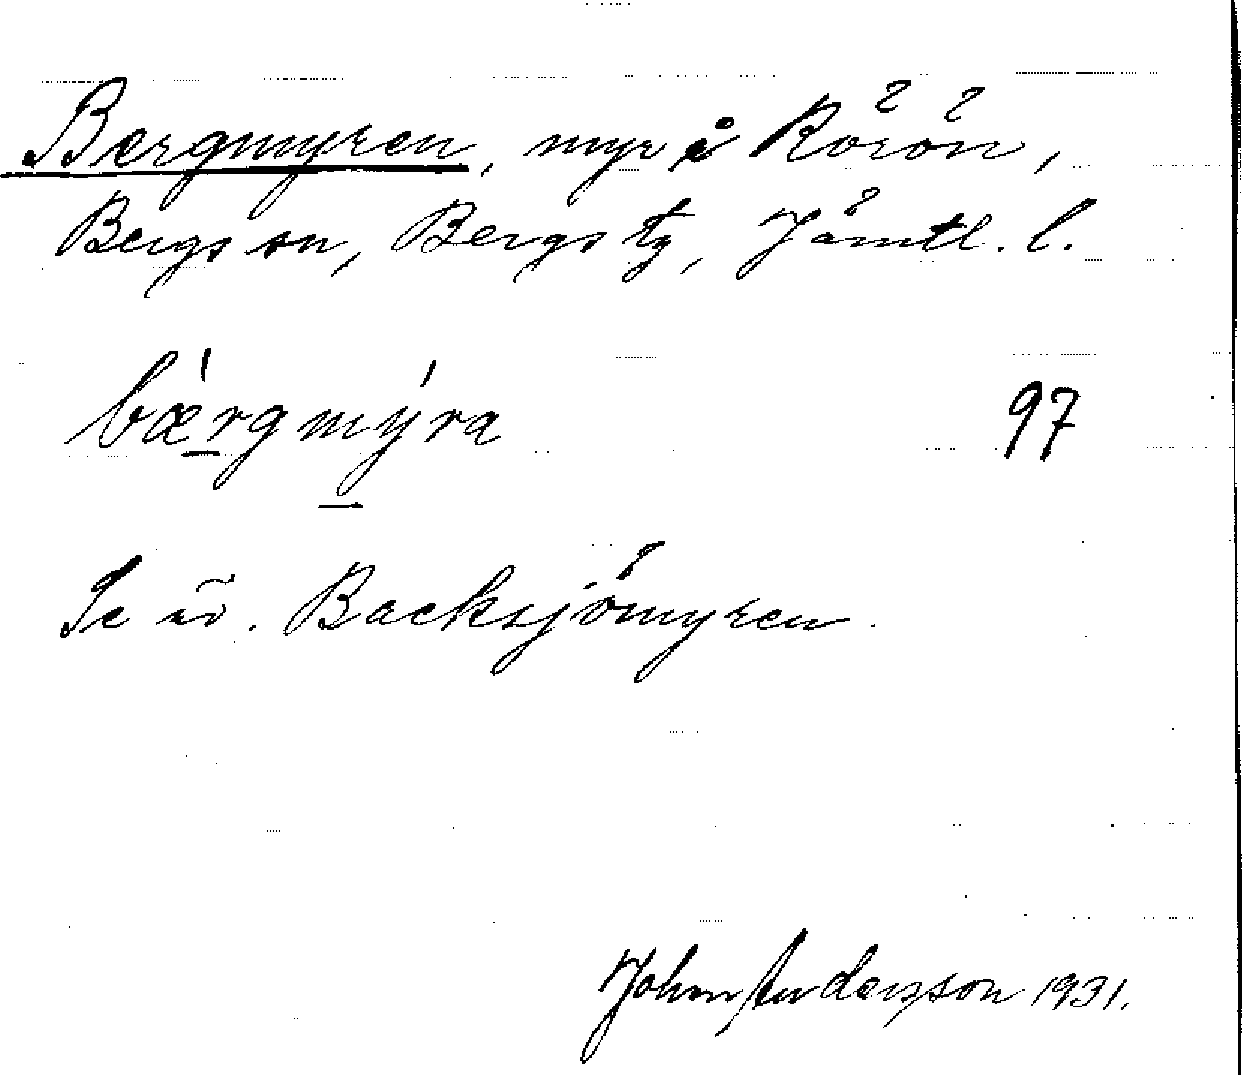 Bergmyren, myr å Rörön,
Bergs sn, Bergs tg, Jämtl. l.
bǽ̱rgmý̱ra 97
Se åv. Backsjömyren.
John Andersson 1931.